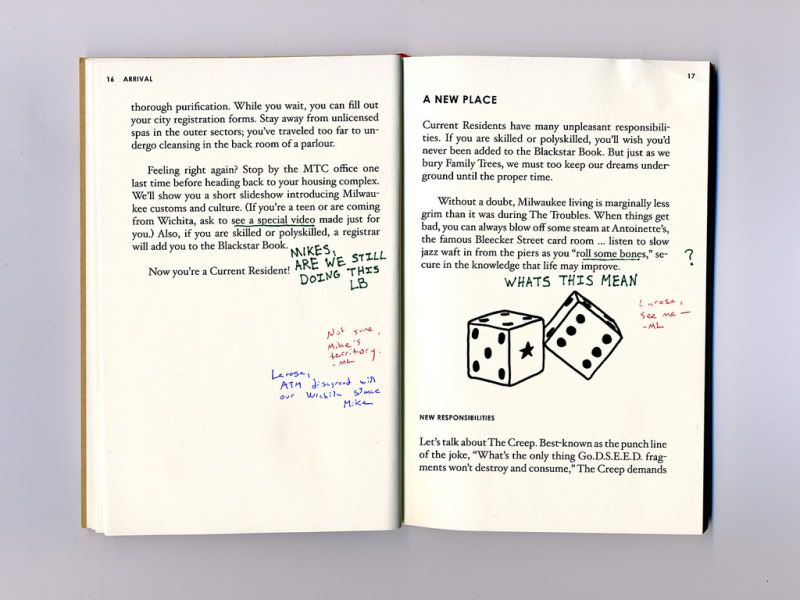 16 ARRIVAL
thorough purification. While you wait, you can fill out
your city registration forms. Stay away from unlicensed
spas in the outer sectors; you've traveled too far to un-
dergo cleansing in the back room of a parlour.
Feeling right again? Stop by the MTC office one
last time before heading back to your housing complex.
We'll show you a short slideshow introducing Milwau-
kee customs and culture. (If you're a teen or are coming
from Wichita, ask to see a special video made just for
you.) Also, if you are skilled or polyskilled, a registrar
will add you to the Blackstar Book.
Now you're a Current Resident!
MIKES,
ARE WE STILL
DOING THIS
LB
Not sure,
Mike's
territory.
-ML
Larose,
ATM disagreed with
our Wichita stance
Mike
17
A NEW PLACE
Current Residents have many unpleasant responsibili-
ties. If you are skilled or polyskilled, you'll wish you'd
never been added to the Blackstar Book. But just as we
bury Family Trees, we must too keep our dreams under-
ground until the proper time.
Without a doubt, Milwaukee living is marginally less
grim than it was during The Troubles. When things get
bad, you can always blow off some steam at Antoinette's,
the famous Bleecker Street card room ... listen to slow
jazz waft in from the piers as you "roll some bones," se-
cure in the knowledge that life may improve.
?
WHATS THIS MEAN
Larose,
see me —
-ML
NEW RESPONSIBILITIES
Let's talk about The Creep. Best-known as the punch line
of the joke, "What's the only thing Go.D.S.E.E.D. frag-
ments won't destroy and consume," The Creep demands